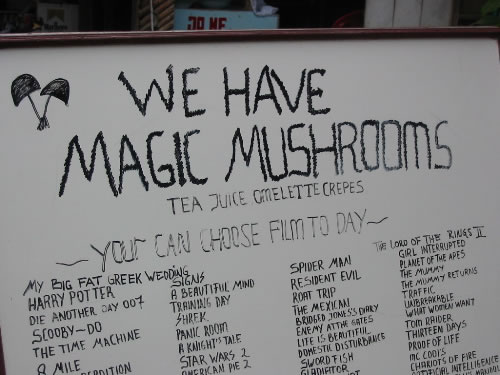 WE HAVE
MAGIC MUSHROOMS
TEA JUICE OMELETTE CREPES
~YOUR CAN CHOOSE FILM TO DAY~
MY BIG FAT GREEK WEDDING
HARRY POTTER
DIE ANOTHER DAY 007
SCOOBY-DO
THE TIME MACHINE
8 MILE
SIGNS
A BEAUTIFUL MIND
TRAINING DAY
SHREK
PANIC ROOM
A KNIGHT'S TALE
STAR WARS 2
AMERICAN PIE 2
SPIDER MAN
RESIDENT EVIL
ROAT TRIP
THE MEXICAN
BRIDGED JONES'S DIARY
ENEMY AT THE GATES
LIFE IS BEAUTIFUL
DOMESTIC DISTURBANCE
SWORD FISH
GLADIATOR
THE LORD OF THE RINGS II
GIRL INTERRUPTED
PLANET OF THE APES
THE MUMMY
THE MUMMY RETURNS
TRAFFIC
UNBREAKABLE
WHAT WOMEN WANT
TOM RAIDER
THIRTEEN DAYS
PROOF OF LIFE
MC COOLS
CHARIOTS OF FIRE
ARTIFICIAL INTELLIGENCE